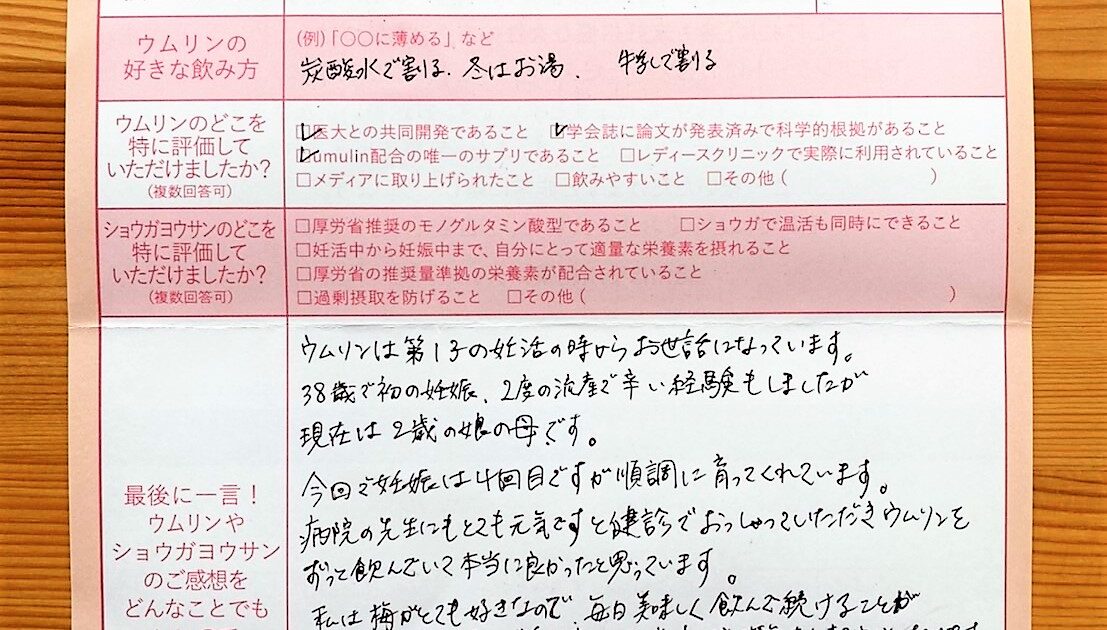 ウムリンの
好きな飲み方
(例)「〇〇に薄める」など
炭酸水で割る.冬はお湯. 牛乳で割る
ウムリンのどこを
特に評価して
いただけましたか?
(複数回答可)
☑医大との共同開発であること ☑学会誌に論文が発表済みで科学的根拠があること
☑umulin配合の唯一のサプリであること □レディースクリニックで実際に利用されていること
□メディアに取り上げられたこと □飲みやすいこと □その他( )
ショウガヨウサンのどこを
特に評価して
いただけましたか?
(複数回答可)
□厚労省推奨のモノグルタミン酸型であること □ショウガで温活も同時にできること
□妊活中から妊娠中まで、自分にとって適量な栄養素を摂れること
□厚労省の推奨量準拠の栄養素が配合されていること
□過剰摂取を防げること □その他( )
最後に一言!
ウムリンや
ショウガヨウサン
のご感想を
どんなことでも
ウムリンは第1子の妊活の時からお世話になっています。
38歳で初の妊娠、2度の流産で辛い経験もしましたが
現在は2歳の娘の母です。
今回で妊娠は4回目ですが順調に育ってくれています。
病院の先生にもとても元気ですと健診でおっしゃっていただきウムリンを
ずっと飲んでいて本当に良かったと思っています。
私は梅がとても好きなので、毎日美味しく飲んで続けることが